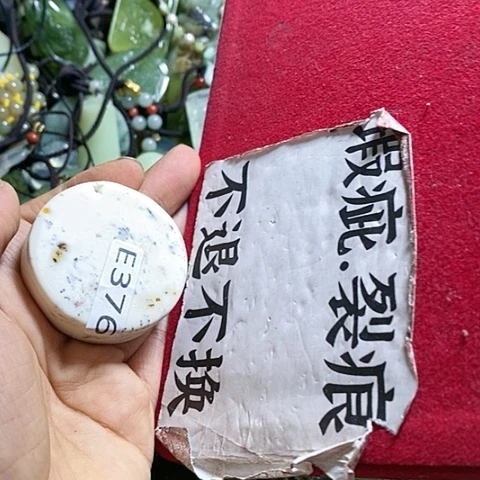 瑕疵.裂痕
不退不换
E376